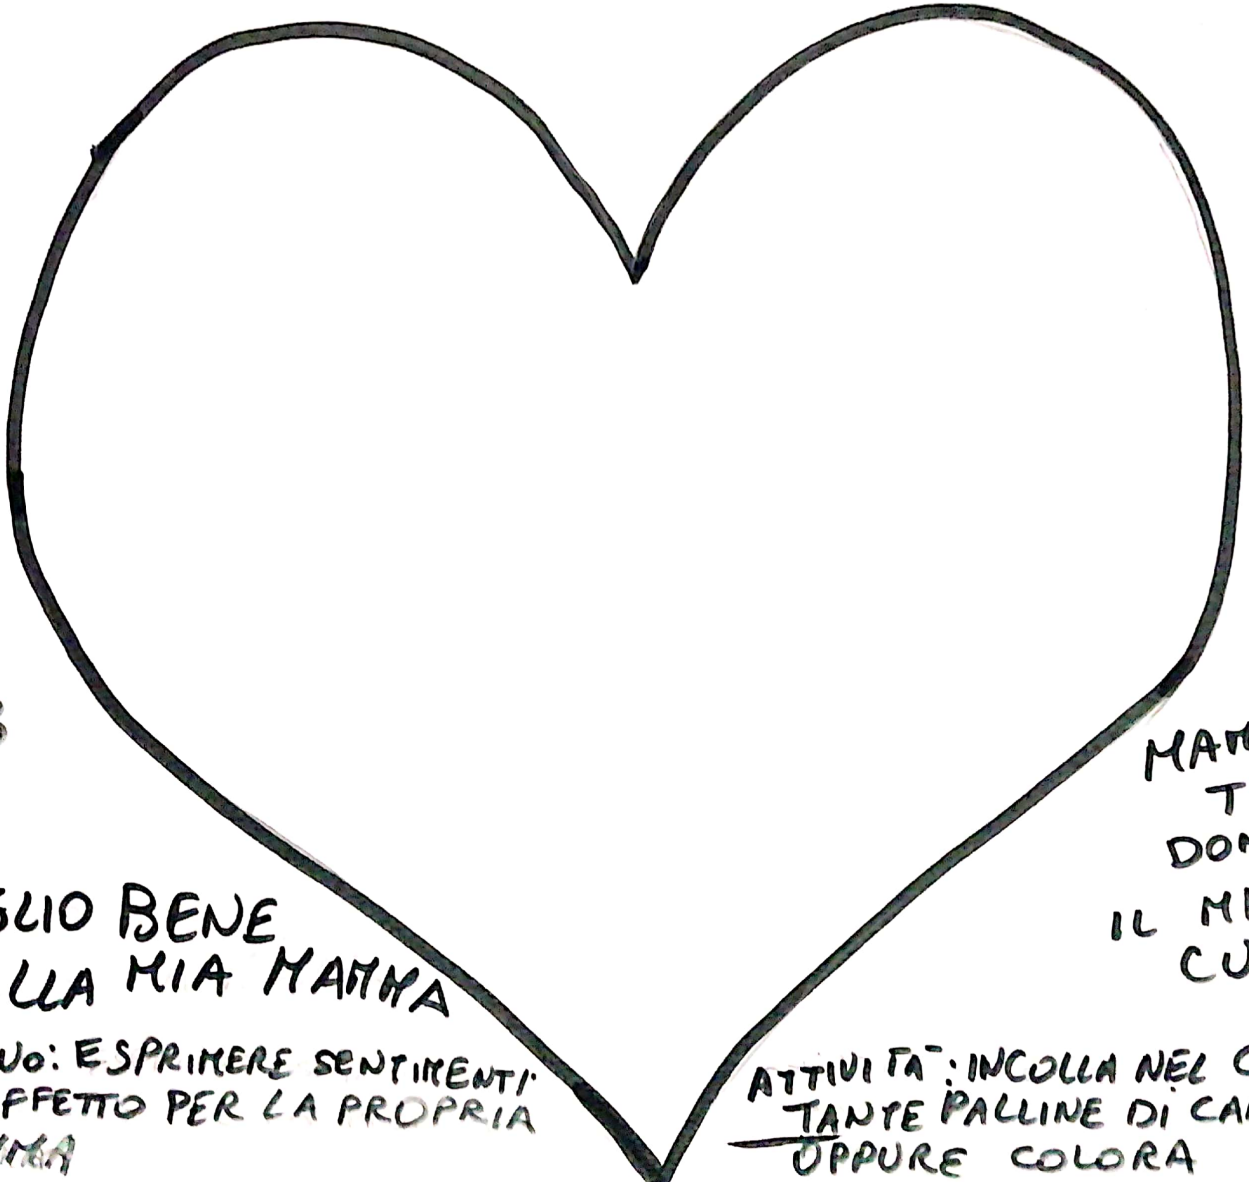 GLIO BENE
LLA MIA MAMMA
VO: ESPRIMERE SENTIMENTI
FFETTO PER LA PROPRIA
MAM
T
DON
IL MI
CU
ATTIVITÀ: INCOLLA NEL C
TANTE PALLINE DI CAR
OPPURE COLORA